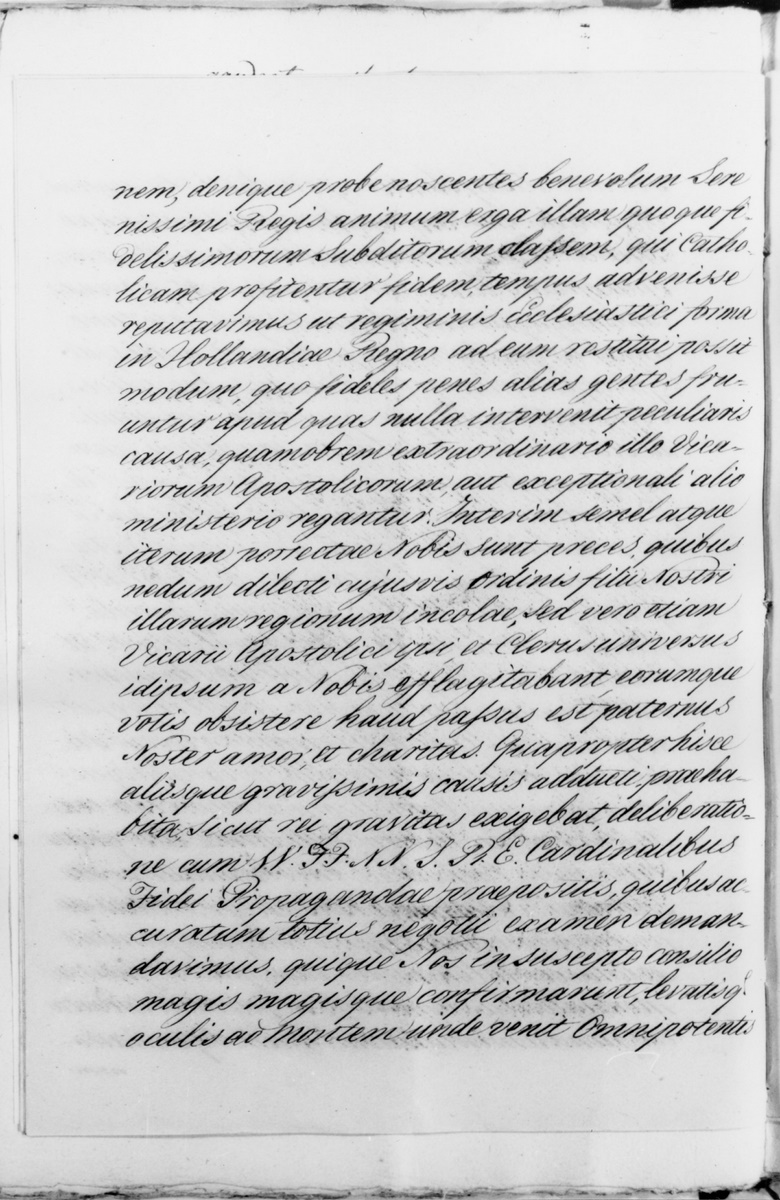 nem, denique probe noscentes benevolum Sere
nissimi Regis animum erga illam quoque fi-
delissimorum Subditorum claſsem, qui Catho-
licam profitentur fidem, tempus advenisse
reputavimus ut regiminis Ecclesiastici forma
in Hollandiae Regno ad eum restitui possit
modum, quo fideles penes alias gentes fru-
untur apud quas nulla intervenit peculiaris
causa, quamobrem extraordinario illo Vica-
riorum Apostolicorum, aut exceptionali alio
ministerio regantur. Interim semel atque
iterum porrectae Nobis sunt preces, quibus
nedum dilecti cujusvis ordinis filii Nostri
illarum regionum incolae, sed vero etiam
Vicarii Apostolici ipsi et Clerus universus
idipsum a Nobis efflagitabant, eorumque
votis obsistere haud paſsus est paternus
Noster amor, et charitas. Quapropter hisce
aliisque graviſsimis causis adducti, praeha-
bita, sicut rei gravitas exigebat, deliberatio-
ne cum VV. FF. NN. S. R. E. Cardinalibus
Fidei Propagandae praepositis, quibus ac-
curatum totius negotii examen deman-
davimus, quique Nos in suscepto consilio
magis magisque confirmarunt, levatisq.
oculis ad Montem unde venit Omnipotentis